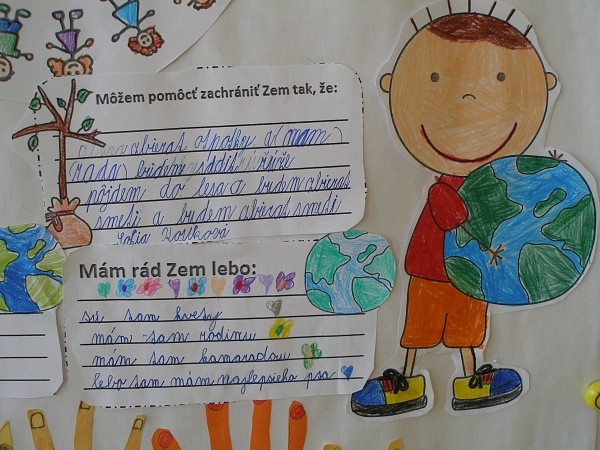 Môžem pomôcť zachrániť Zem tak, že:
zbierať odpadky a mám
rada budem sadiť
pôjdem do lesa a budem zbierať
smeti a budem zbierať smeti
Sofia
Mám rád Zem lebo:
sú sam kvety
mám sam rodinu
mám sam kamaradou
lebo sam mám najlepšieho psa